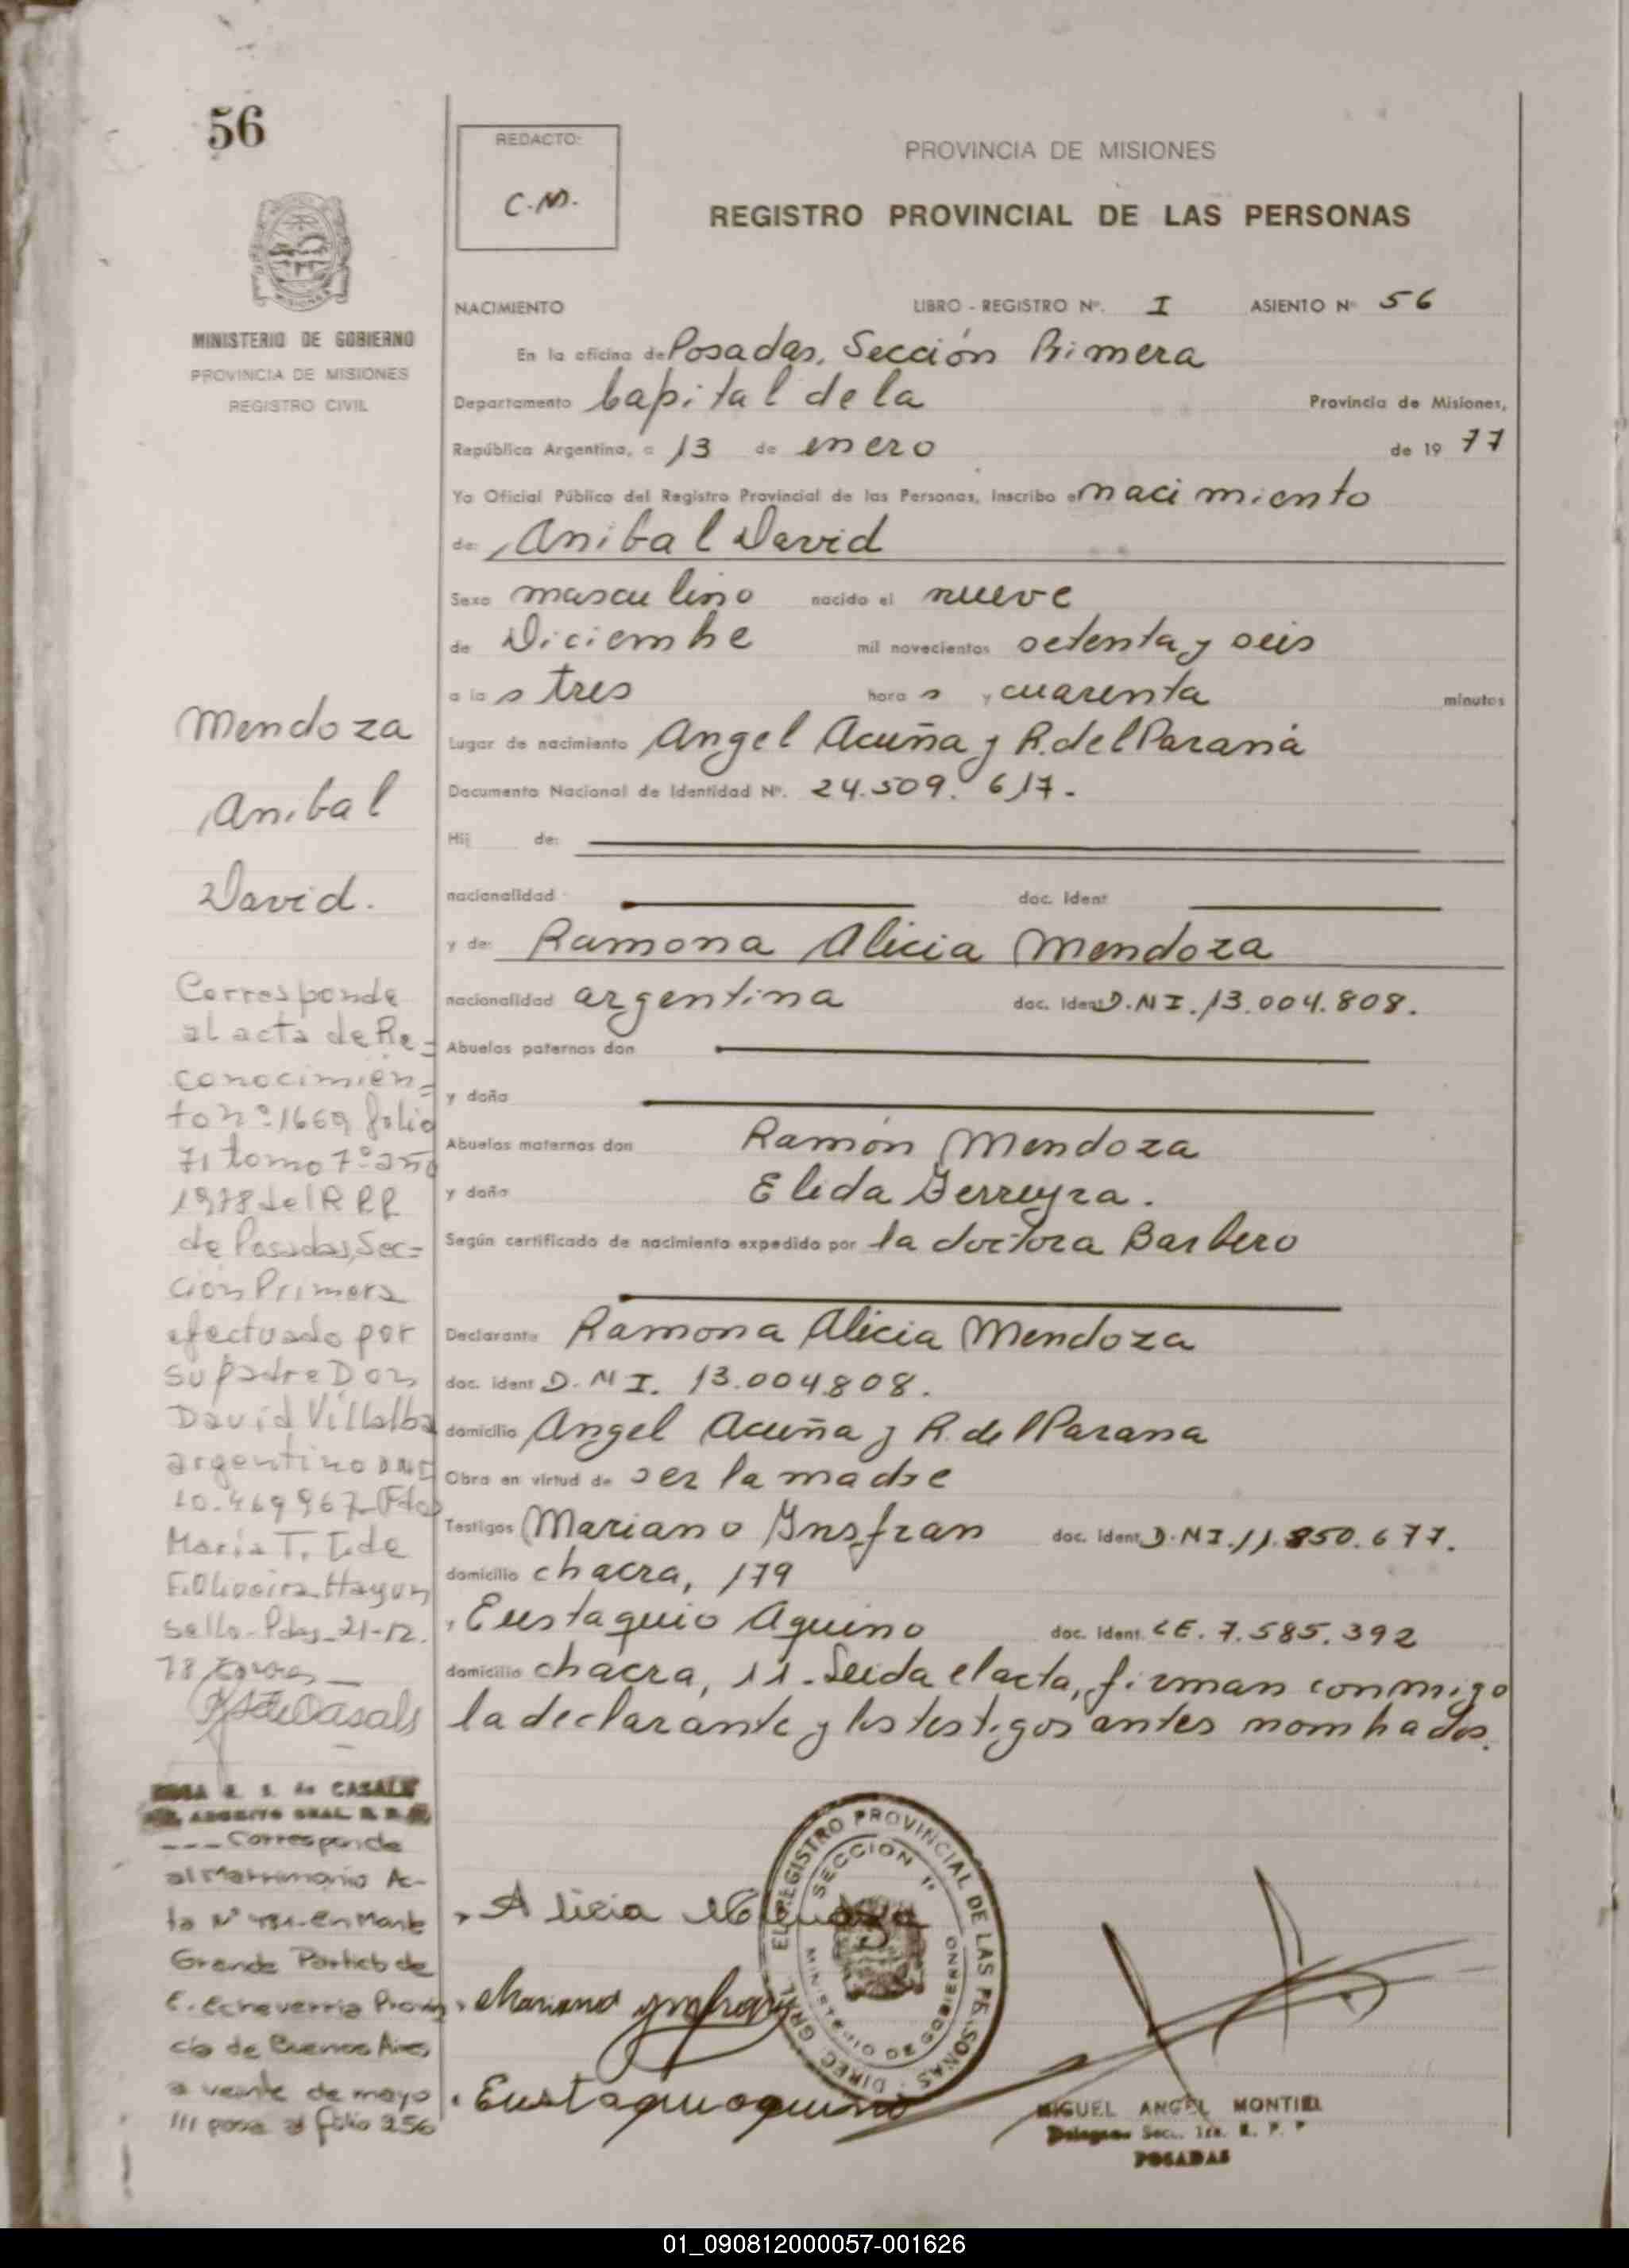 56
REDACTO:
C.M.
PROVINCIA DE MISIONES
REGISTRO PROVINCIAL DE LAS PERSONAS
MINISTERIO DE GOBIERNO
PROVINCIA DE MISIONES
REGISTRO CIVIL
NACIMIENTO LIBRO - REGISTRO Nº. I ASIENTO Nº 56
En la oficina de Posadas, Sección Primera
Departamento Capital de la Provincia de Misiones,
República Argentina, a 13 de enero de 19 77
Yo Oficial Público del Registro Provincial de las Personas, Inscribo el nacimiento
de: Anibal David
Sexo masculino nacido el nueve
de Diciembre mil novecientos setenta y seis
a las tres horas y cuarenta minutos
Lugar de nacimiento Angel Acuña y R. del Paraná
Documento Nacional de Identidad Nº. 24.509.617.-
Hij de:
nacionalidad doc. Ident
y de: Ramona Alicia Mendoza
nacionalidad argentina doc. Ident D.N.I. 13.004.808.
Abuelos paternos don
y doña
Abuelos maternos don Ramón Mendoza
y doña Elida Ferreyra.
Según certificado de nacimiento expedido por la doctora Barbero
Declarante Ramona Alicia Mendoza
doc. ident D.N.I. 13.004.808.
domicilio Angel Acuña y R. del Parana
Obra en virtud de ser la madre
Testigos Mariano Insfran doc. ident. D.N.I. 11.850.677.
domicilio chacra, 179
Eustaquio Aquino doc. ident. L.E. 7.585.392
domicilio chacra, 11.- Leida el acta, firman conmigo
la declarante y los testigos antes nombrados.
Mendoza
Anibal
David.
Corresponde
al acta de Re=
conocimien=
to nº 1669 folio
71 tomo 7º año
1978 del R P P
de Posadas, Sec=
ción Primera
efectuado por
su padre Don
David Villalba
argentino DNI
10.469.967- Fdo
Maria T. I. de
F. Oliveira Hayun
sello- Pdas- 21-12.
78
de Casals
ROSA R. S. de CASALS
GRAL R. P. P.
--- Corresponde
al Matrimonio Ac-
ta Nº en Monte
Grande Partido de
E. Echeverria Provin
cia de Buenos Aires
a veinte de mayo
/// pasa al folio 256
Alicia Mendoza
Mariano Ynsfran
Eustaquio quino
DIREC. GRAL. EL REGISTRO PROVINCIAL DE LAS PERSONAS
SECCION 1ª
MINISTERIO DE GOBIERNO
MIGUEL ANGEL MONTIEL
Delegado Secc. 1ra. R. P. P
POSADAS
01_090812000057-001626